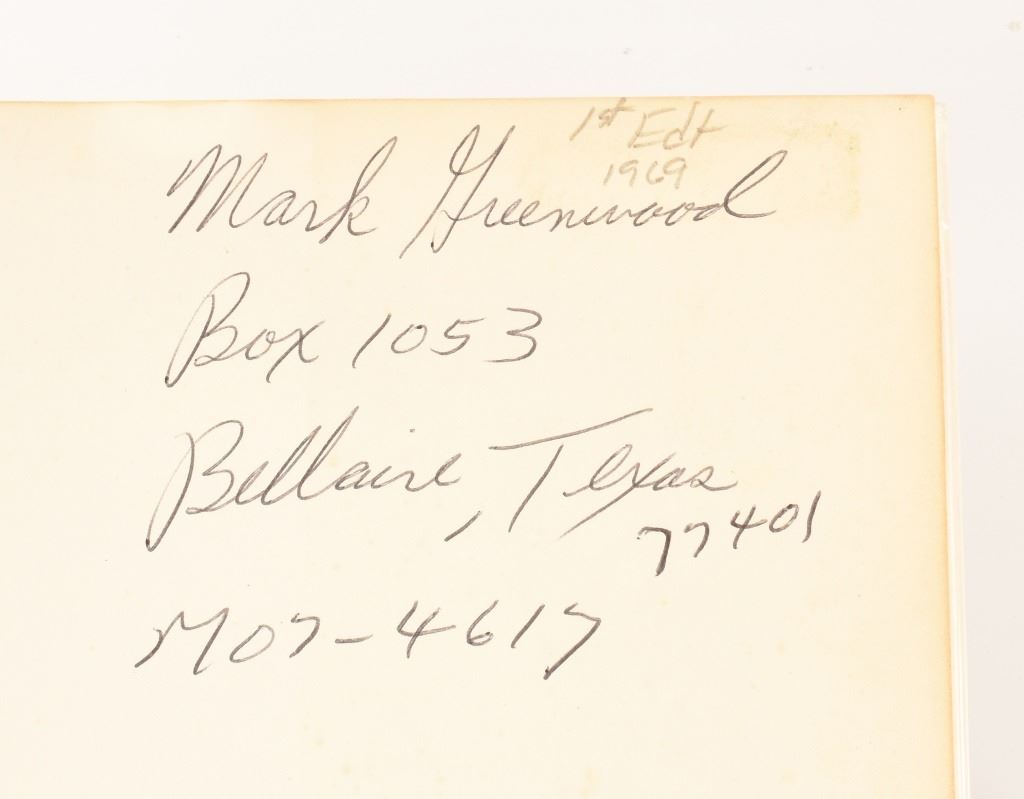 1st Edt
1969
Mark Greenwood
Box 1053
Bellaire, Texas
77401
MO7-4617